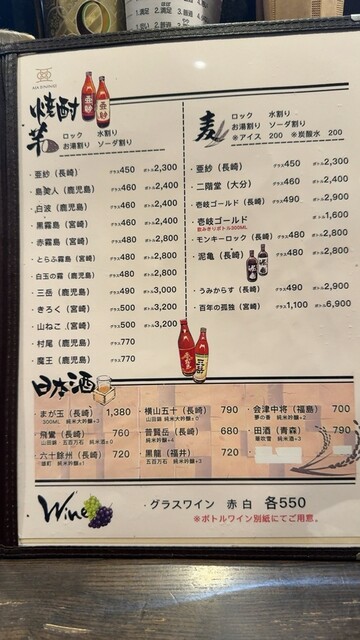 焼酎
芋
ロック 水割り
お湯割り ソーダ割り
・亜紗（長崎） グラス450 ボトル2,300
・島美人（鹿児島） グラス460 ボトル2,400
・白波（鹿児島） グラス460 ボトル2,400
・黒霧島（宮崎） グラス460 ボトル2,400
・赤霧島（宮崎） グラス480 ボトル2,800
・とらふ霧島（宮崎） グラス480 ボトル2,800
・白玉の露（鹿児島） グラス480 ボトル2,800
・三岳（鹿児島） グラス490 ボトル3,000
・きろく（宮崎） グラス500 ボトル3,200
・山ねこ（宮崎） グラス500 ボトル3,200
・村尾（鹿児島） グラス770
・魔王（鹿児島） グラス770
麦
ロック 水割り
お湯割り ソーダ割り
＊アイス 200 ＊炭酸水 200
・亜紗（長崎） グラス450 ボトル2,300
・二階堂（大分） グラス460 ボトル2,400
・壱岐ゴールド（長崎） グラス490 ボトル2,900
・壱岐ゴールド ボトル1,600
飲みきりボトル300ML
・モンキーロック（長崎） グラス480 ボトル2,800
・泥亀（長崎） グラス480 ボトル2,800
・うみからす（長崎） グラス490 ボトル2,900
・百年の孤独（宮崎） グラス1,100 ボトル6,900
日本酒
・まが玉（長崎） 1,380
300ML 純米大吟醸+3
・飛鸞（長崎） 760
山田錦 五百万石 純米酒±0
・六十餘州（長崎） 720
純米吟醸+1
・横山五十（長崎） 790
山田錦 純米大吟醸±0
・普賢岳（長崎） 680
純米吟醸+4
・黒龍（福井） 720
五百万石 純米吟醸+3
・会津中将（福島） 700
夢の香 純米吟醸+2
・田酒（青森） 790
華吹雪 純米酒+3
Wine
・グラスワイン 赤 白 各550
※ボトルワイン別紙にてご用意。